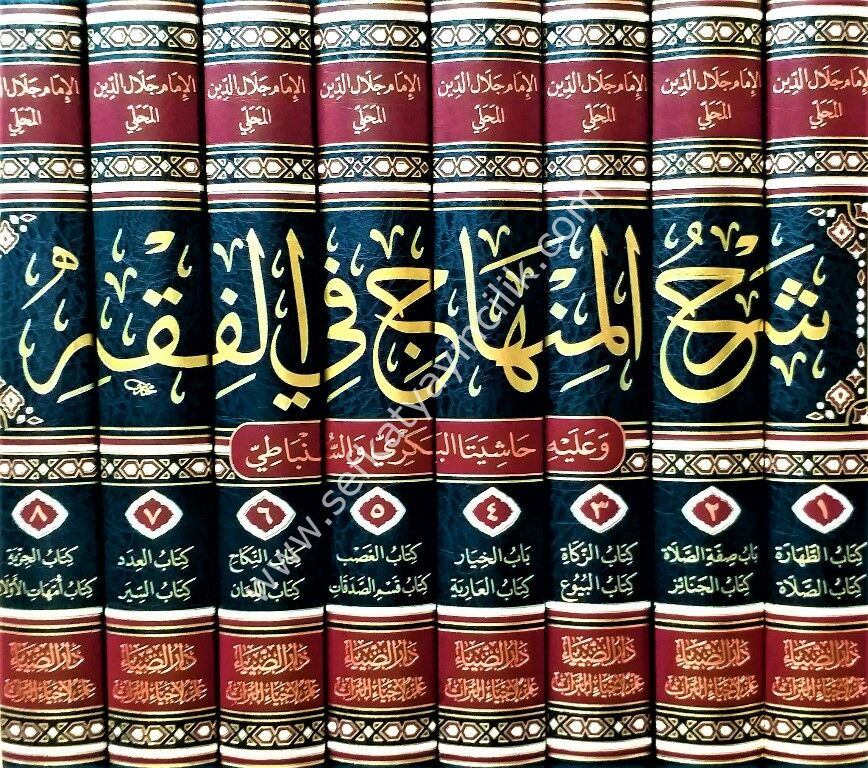 الإمام جلال الدين
المحلي
الإمام جلال الدين
المحلي
الإمام جلال الدين
المحلي
الإمام جلال الدين
المحلي
الإمام جلال الدين
المحلي
الإمام جلال الدين
المحلي
الإمام جلال الدين
المحلي
الإمام جلال الدين
المحلي
شَرْحُ المِنْهَاجِ فِي الفِقْهِ
وَعَلَيْهِ حَاشِيَتَا البَكْرِيِّ وَالسُّنْبَاطِيِّ
١
كتاب الطهارة
كتاب الصلاة
٢
باب صفة الصلاة
كتاب الجنائز
٣
كتاب الزكاة
كتاب البيوع
٤
باب الخيار
كتاب العارية
٥
كتاب الغصب
كتاب قسم الصدقات
٦
كتاب النكاح
كتاب اللعان
٧
كتاب العدد
كتاب السير
٨
كتاب الجزية
كتاب أمهات الأولاد
دار الضياء
دار الضياء
دار الضياء
دار الضياء
دار الضياء
دار الضياء
دار الضياء
دار الضياء
www.seffatyayincilik.com